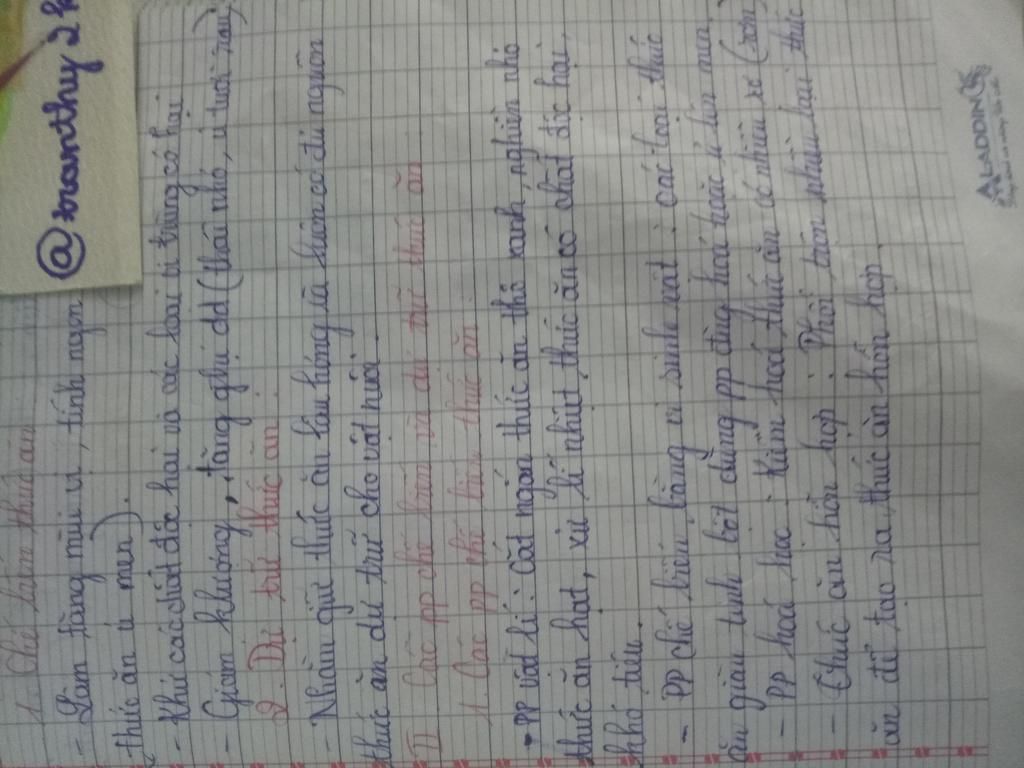 @tranthy2k
1. Chế biến thức ăn
- Làm tăng mùi vị, tính ngon
(thức ăn ủ men).
- Khử các chất độc hại và các loại vi trùng có hại
- Giảm khối lượng, tăng nghị dd (thái nhỏ, ủ tươi rau)
2. Dự trữ thức ăn
- Nhằm giữ thức ăn lâu hỏng và luôn có đủ nguồn
thức ăn dự trữ cho vật nuôi.
II Các pp chế biến và dự trữ thức ăn
1. Các pp chế biến thức ăn.
- PP vật lí: Cắt ngắn thức ăn thô xanh, nghiền nhỏ
thức ăn hạt, xử lí nhiệt thức ăn có chất độc hại,
khó tiêu.
- PP chế biến bằng vi sinh vật: các loại thức
ăn giàu tinh bột dùng pp đường hoá hoặc ủ lên men
- PP hoá học: Kiềm hoá thức ăn có nhiều xơ (rơm)
- thức ăn hỗn hợp: Phối trộn nhiều loại thức
ăn để tạo ra thức ăn hỗn hợp.
ALADDIN